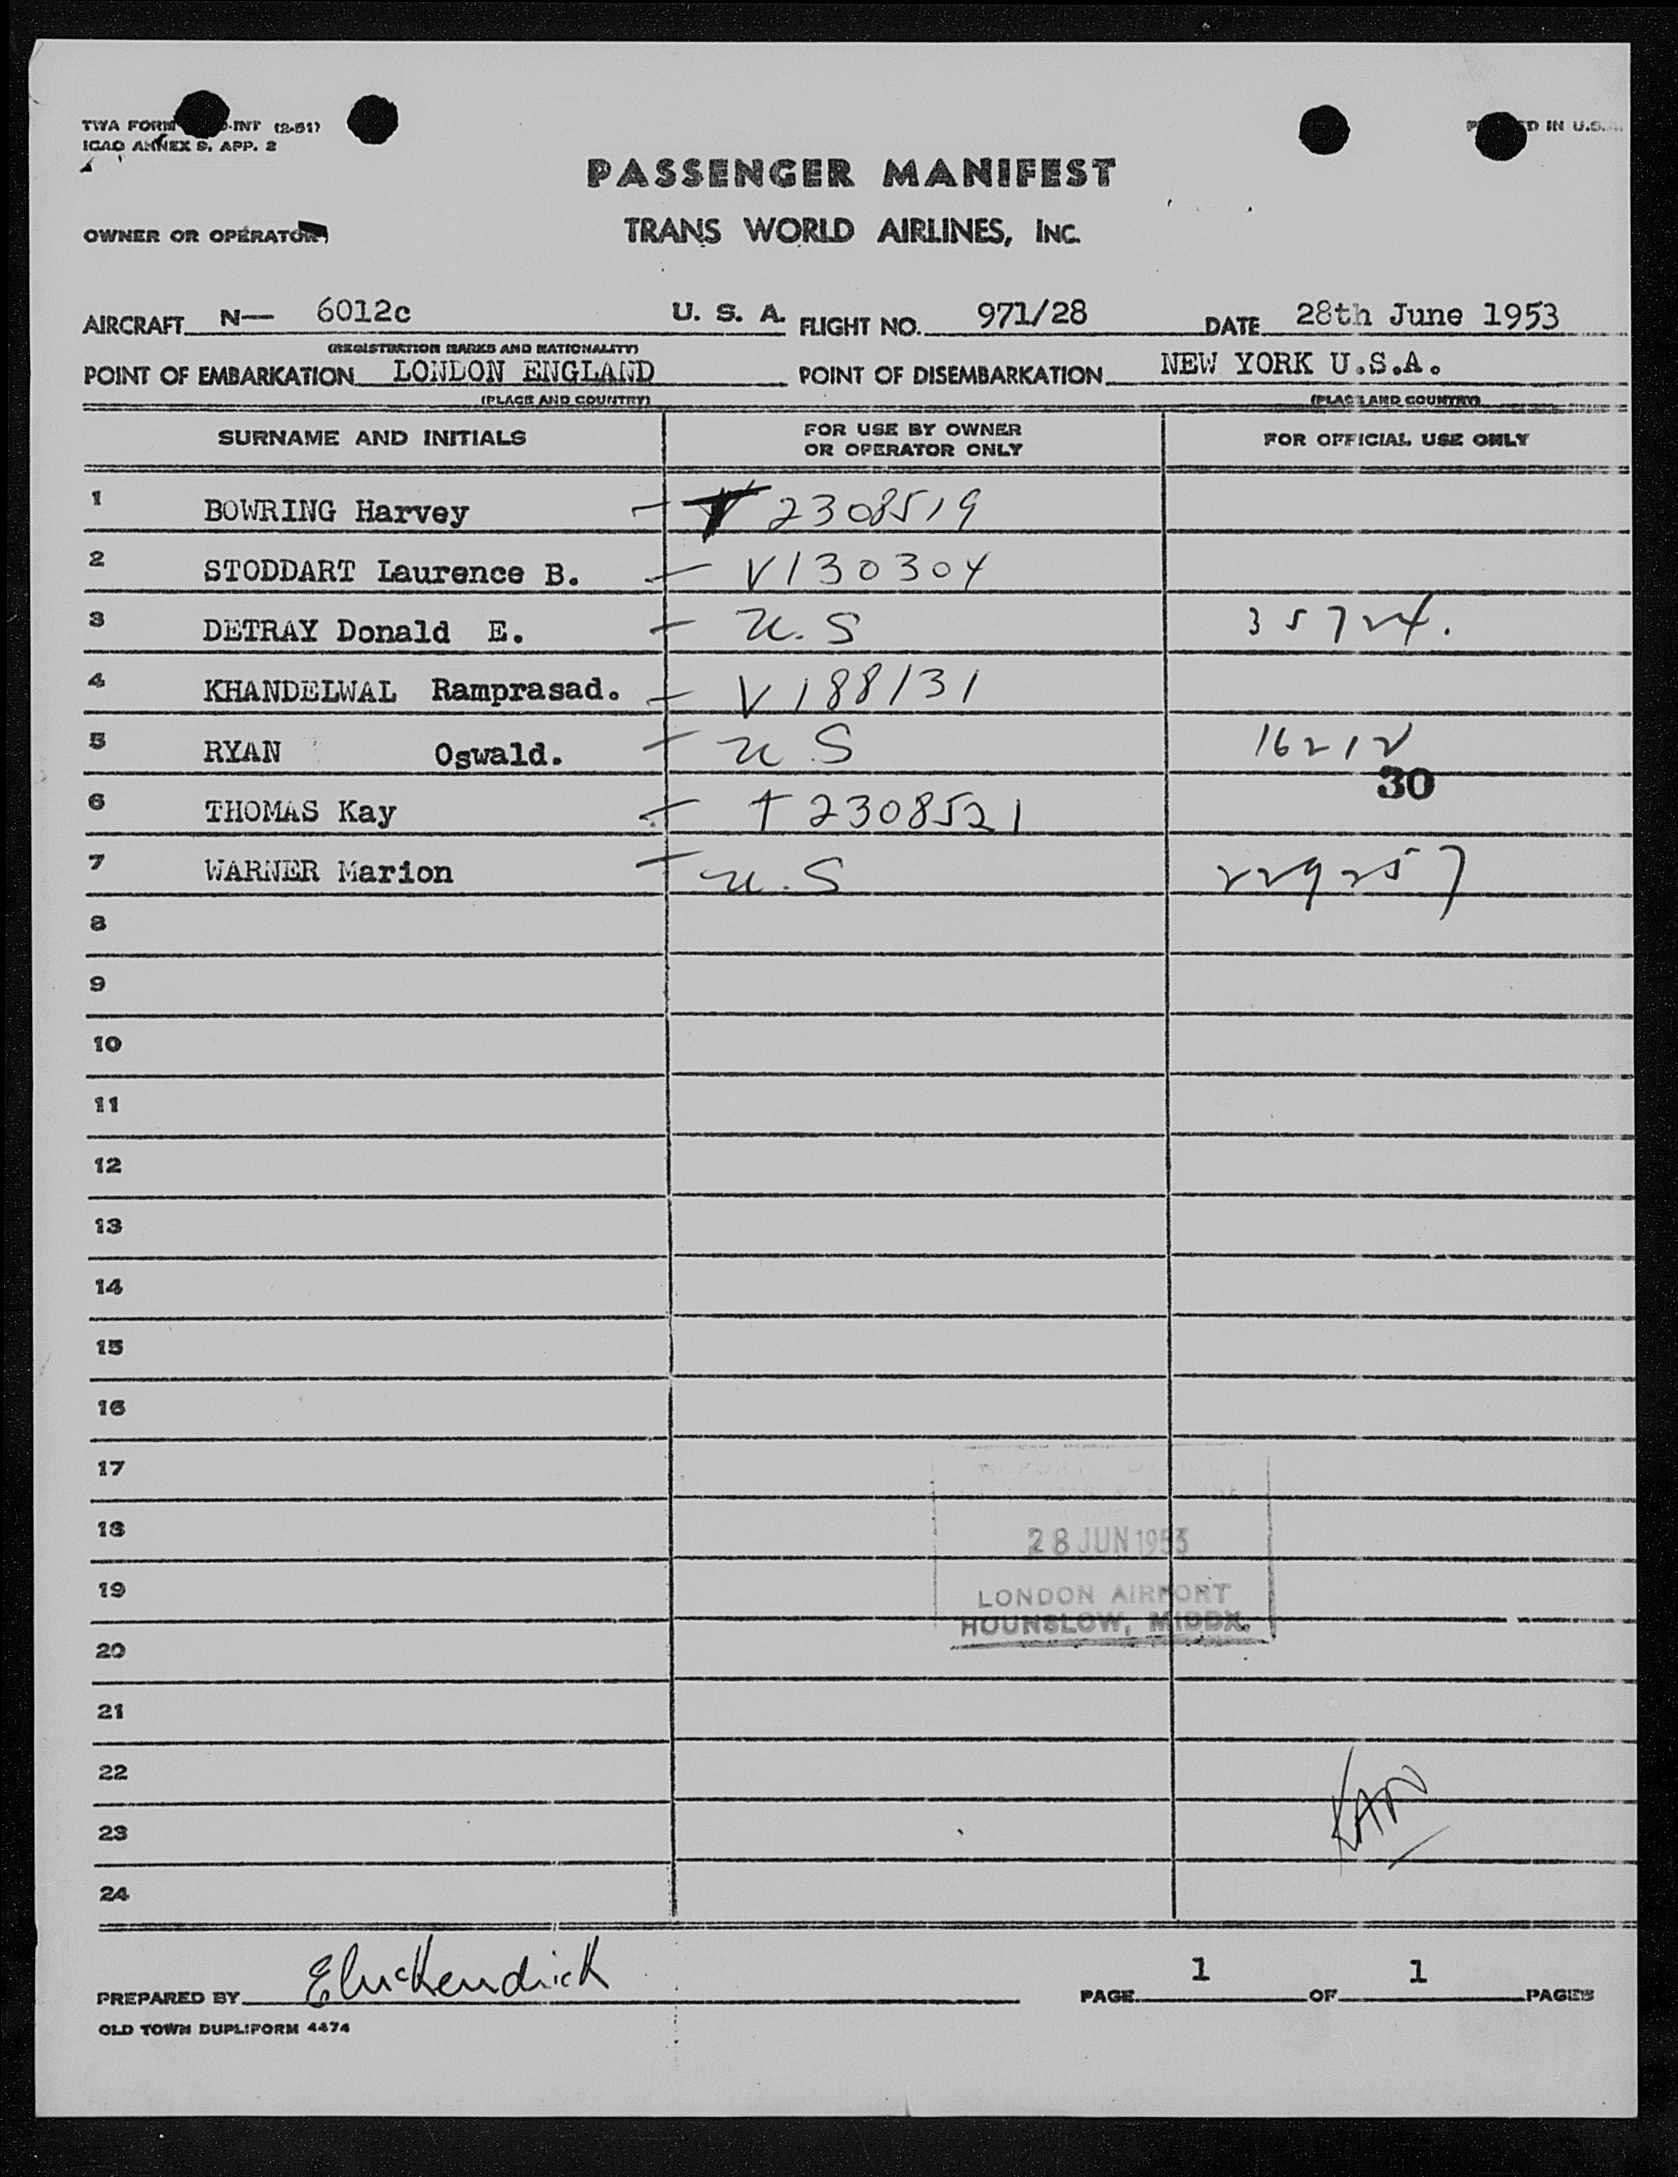 TWA FORM -INT (2-51)
ICAO ANNEX 9, APP. 2
IN U.S.
PASSENGER MANIFEST
OWNER OR OPERATOR
TRANS WORLD AIRLINES, INC.
AIRCRAFT N— 6012c U. S. A. FLIGHT NO. 971/28 DATE 28th June 1953
(REGISTRATION MARKS AND NATIONALITY)
POINT OF EMBARKATION LONDON ENGLAND POINT OF DISEMBARKATION NEW YORK U.S.A.
(PLACE AND COUNTRY) (PLACE AND COUNTRY)
SURNAME AND INITIALS FOR USE BY OWNER OR OPERATOR ONLY FOR OFFICIAL USE ONLY
1 BOWRING Harvey — T 2308519
2 STODDART Laurence B. — V130304
3 DETRAY Donald E. — U.S 35724.
4 KHANDELWAL Ramprasad. — V188131
5 RYAN Oswald. — U.S 16212
30
6 THOMAS Kay — T 2308521
7 WARNER Marion — U.S 229257
8
9
10
11
12
13
14
15
16
17
18
28 JUN 1953
19
LONDON AIRPORT
HOUNSLOW, MIDDX.
20
21
22
23
24
PREPARED BY PAGE 1 OF 1 PAGES
OLD TOWN DUPLIFORM 4474